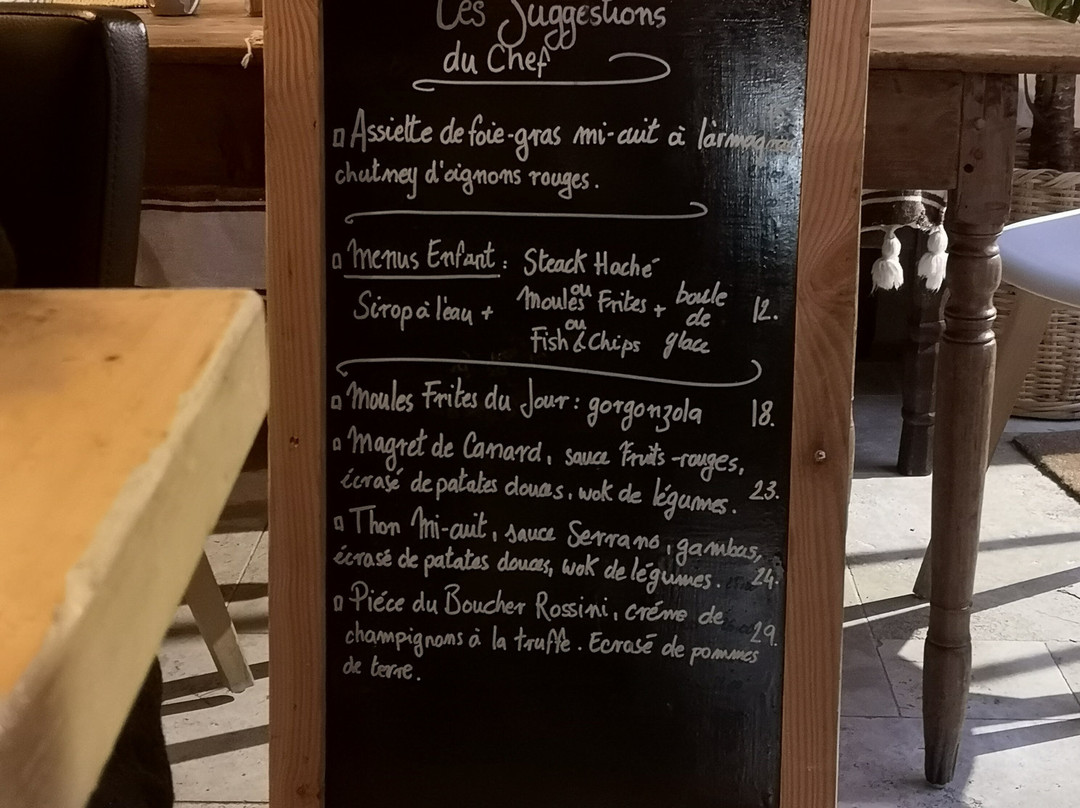 Les Suggestions
du Chef
Assiette de foie-gras mi-cuit à l'armagnac
chutney d'oignons rouges.
Menus Enfant : Steack Haché
ou
Sirop à l'eau + Moules Frites + boule de glace 12.
ou
Fish & Chips
Moules Frites du Jour : gorgonzola 18.
Magret de Canard, sauce Fruits-rouges,
écrasé de patates douces, wok de légumes. 23.
Thon Mi-cuit, sauce Serrano, gambas,
écrasé de patates douces, wok de légumes. 24.
Piéce du Boucher Rossini, créme de
champignons à la truffe. Ecrasé de pommes 29.
de terre.